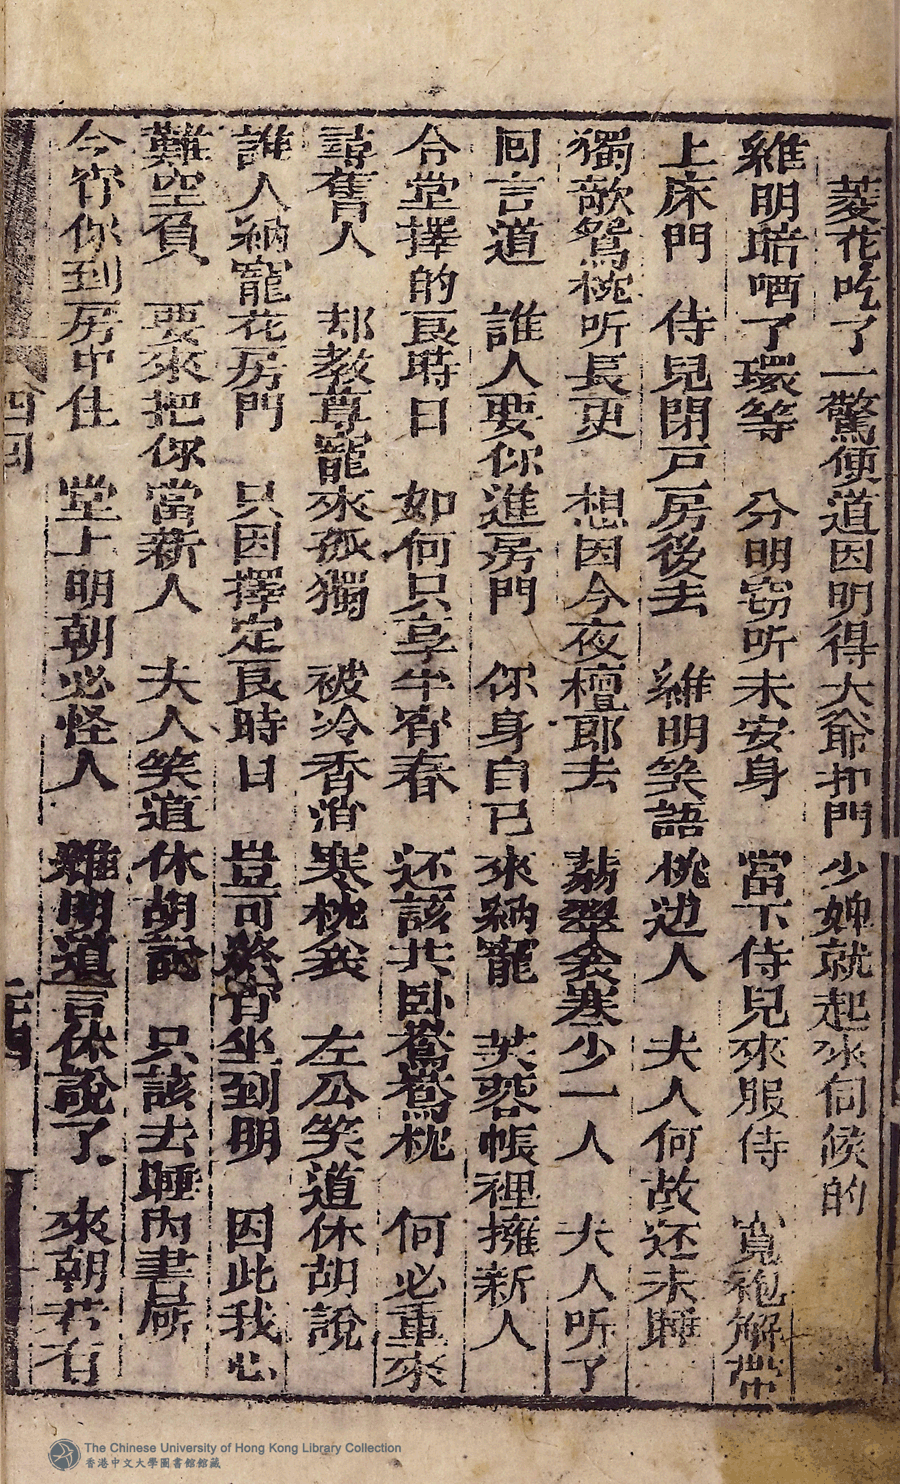 菱花吃了一驚便道因明得大爺扣門　少婢就起來伺候的
維明踣哂了環等　分明窃听未安身　當下侍兒來服侍　寬袍解帶
上床門　侍兒閉戸房後去　維明笑語枕边人　夫人何故还未睡
獨敵鴛枕听長更　想因今夜檀郎去　翡翠衾寒少一人　夫人听了
囘言道　誰人要你進房門　你身自已來納寵　芙蓉帳裡擁新人
令堂擇的良時日　如何只享半宵春　还該共卧鴛鴦枕　何必重來
尋舊人　却教尊寵來孤獨　被冷香消寒枕我　左公笑道休胡說
誰人納寵花房門　只因擇定良時日　豈可終宵坐到明　因此我心
難空負　要來把你當新人　夫人笑道休胡說　只該去睡內書房
今宵你到房中住　堂上明朝必怪人　維明道言休說了　來朝若有
四囘
The Chinese University of Hong Kong Library Collection
香港中文大學圖書館館藏